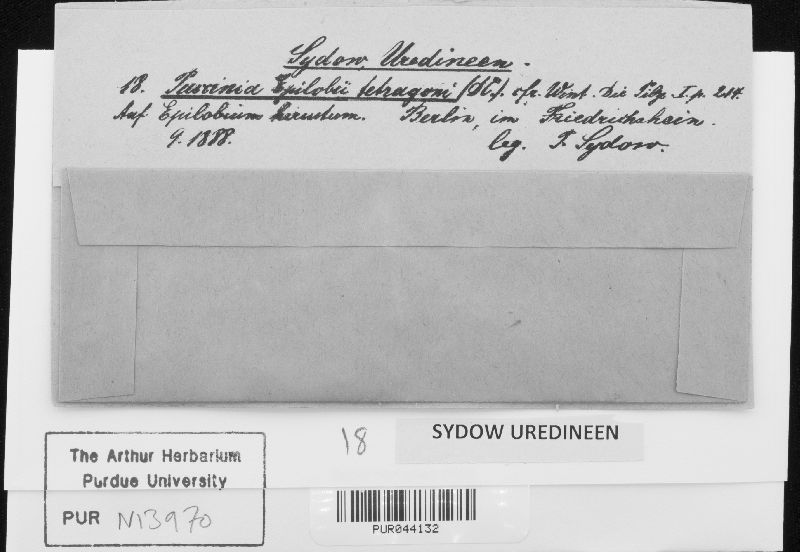 Sydow, Uredineen.
18. Puccinia Epilobii tetragoni (DC). cfr. Wint. Die Pilze I. p. 214.
Auf Epilobium hirsutum. Berlin, im Friedrichshain.
9. 1888. leg. P. Sydow.
18
SYDOW UREDINEEN
The Arthur Herbarium
Purdue University
PUR N13970
PUR044132